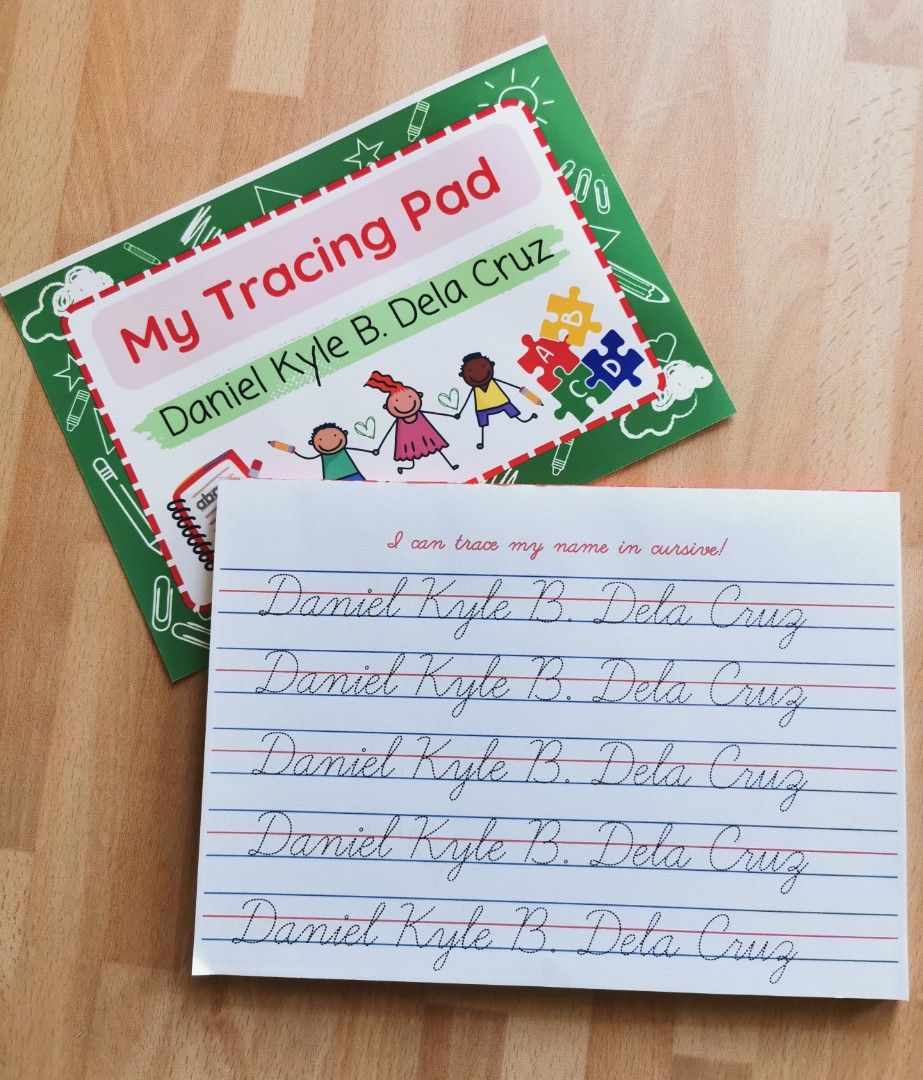 My Tracing Pad
Daniel Kyle B. Dela Cruz
A
B
C
D
abc
I can trace my name in cursive!
Daniel Kyle B. Dela Cruz
Daniel Kyle B. Dela Cruz
Daniel Kyle B. Dela Cruz
Daniel Kyle B. Dela Cruz
Daniel Kyle B. Dela Cruz